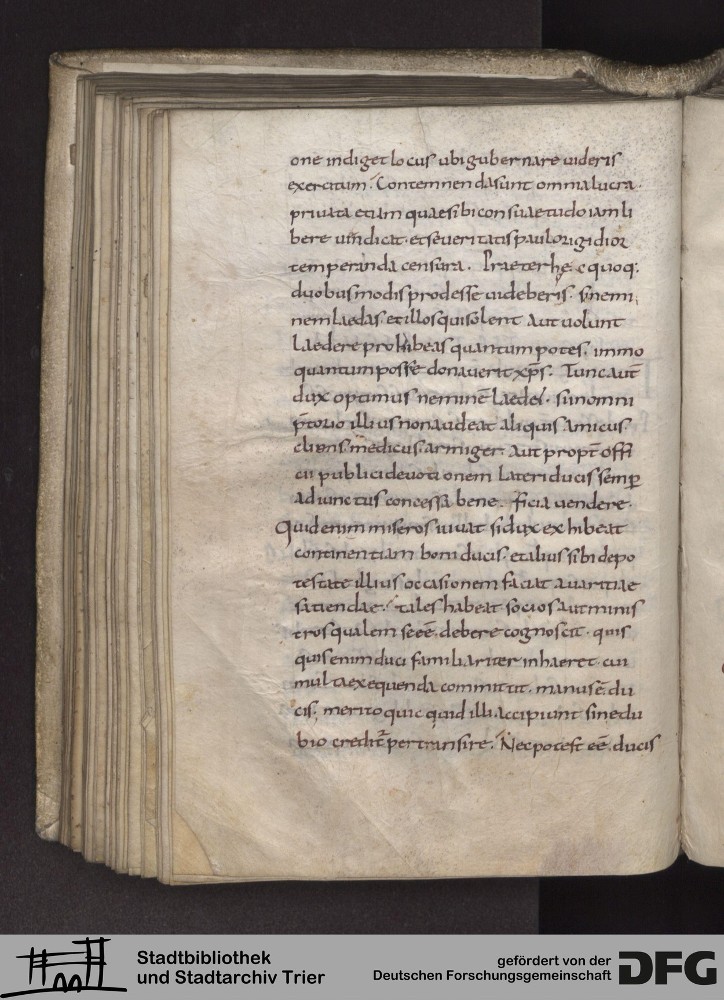 one indiget locus ubi gubernare uideris
exercitum. Contemnenda sunt omnia lucra.
priuata etiam quae sibi consuaetudo iam li
bere uindicat. et seueritatis paulo rigidior
temperanda censura. Praeter hęc quoq:
duobus modis prodesse uideberis. si nemi
nem laedas. et illos qui solent aut uolunt
laedere prohibeas quantum potes. immo
quantum posse donauerit xp̄s. Tunc aut̄
dux optimus neminē laedet. si in omni
p̄torio illius non audeat aliquis. amicus
cliens. medicus. armiger. aut propt̄ offi
cii publici deuotionem lateri ducis semp̄
adiunctus concessa beneficia uendere.
Quid enim miseros iuuat si dux exhibeat
continentiam boni ducis. et alius sibi de po
testate illius occasionem faciat auaritiae
satiendae. tales habeat socios aut minis
tros qualem se eē. debere cognoscit. quis
quis enim duci familiariter inhaeret. cui
multa exequenda committit. manus ē. du
cis. merito quicquid illi accipiunt sine du
bio credit̄ pertransire. Nec potest eē. ducis
Stadtbibliothek
und Stadtarchiv Trier
gefördert von der
Deutschen Forschungsgemeinschaft
DFG